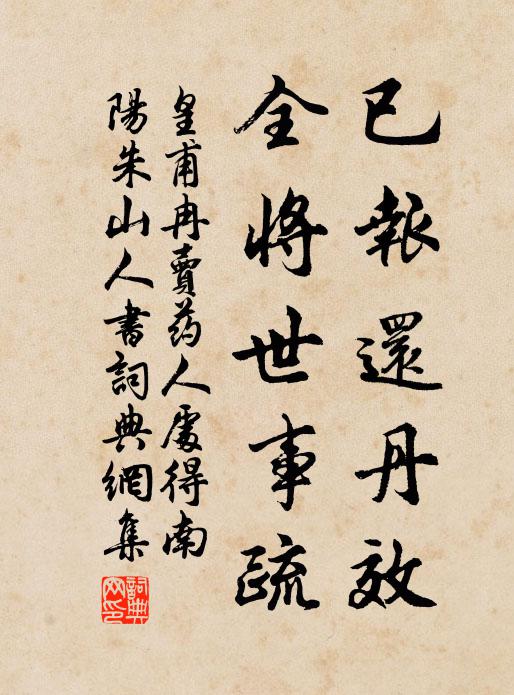 已報還丹效
全將世事疏
皇甫冉賣药人處得南
陽朱山人書詞典網集
詞典网印